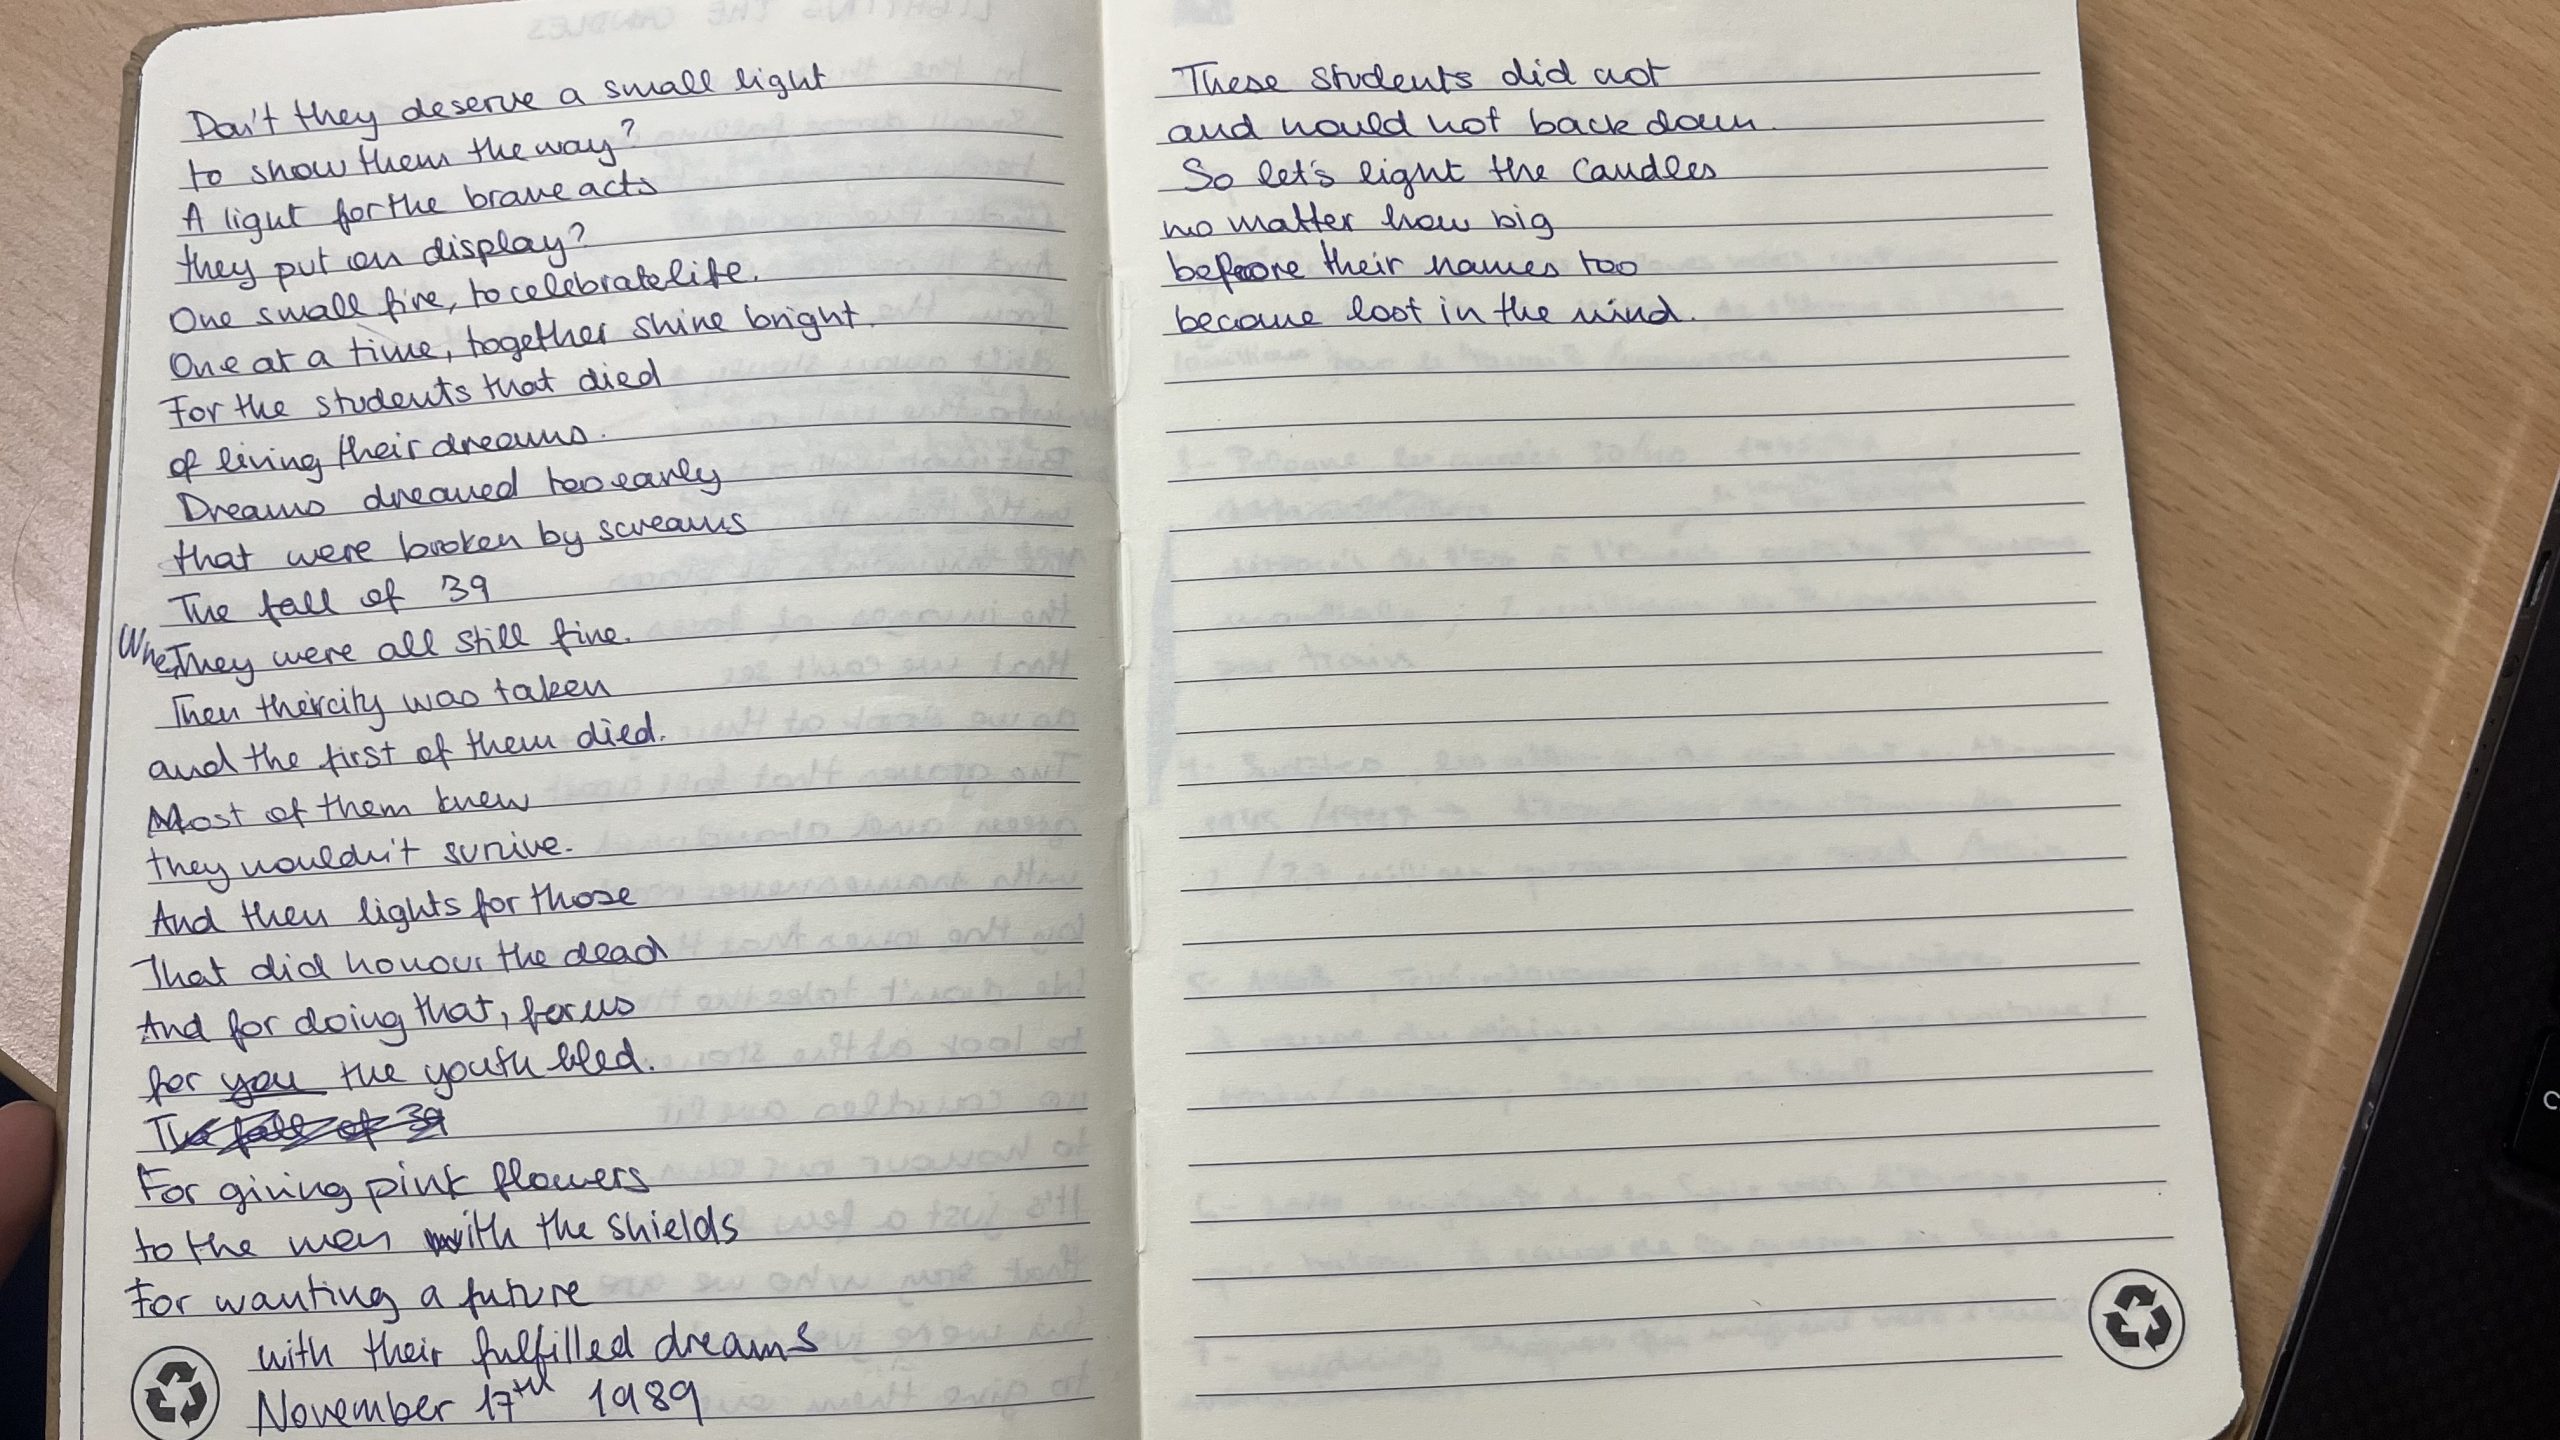 Don't they deserve a small light
to show them the way?
A light for the brave acts
they put on display?
One small fire, to celebrate life.
One at a time, together shine bright.
For the students that died
of living their dreams.
Dreams dreamed too early
that were broken by screams
The fall of 39
When They were all still fine.
Then their city was taken
and the first of them died.
Most of them knew
they wouldn't survive.
And then lights for those
That did honour the dead
And for doing that, for us
for you the youth bled.
The fall of 39
For giving pink flowers
to the men with the shields
For wanting a future
with their fulfilled dreams
November 17th 1989
These students did not
and would not back down.
So let's light the candles
no matter how big
before their names too
become lost in the wind.